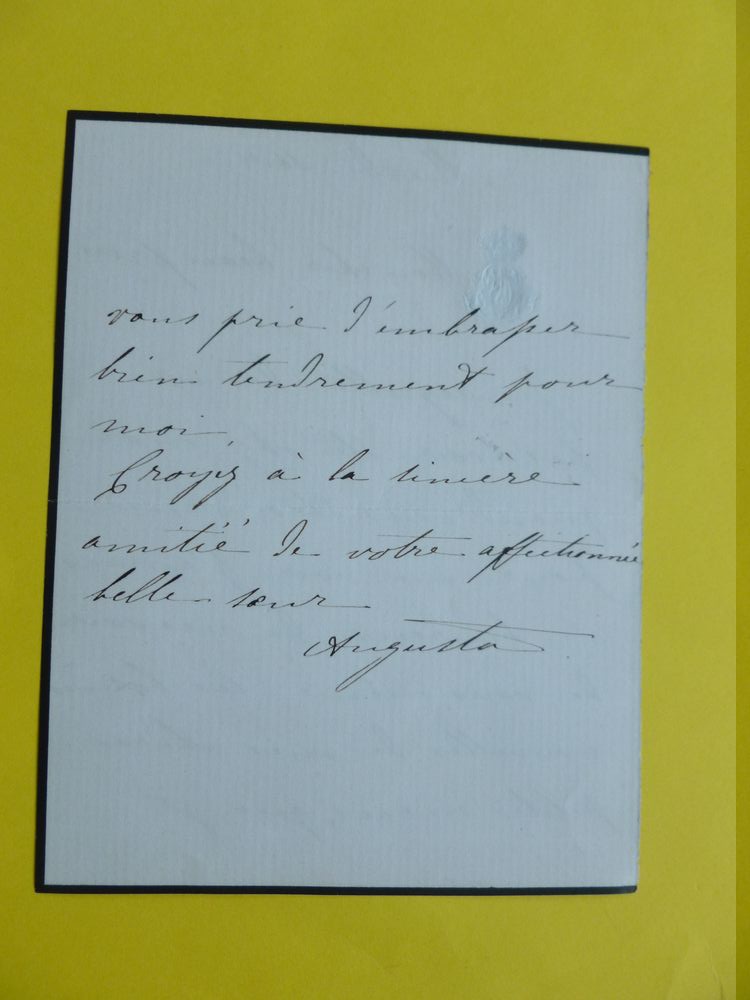 vous prie d'embrasser
bien tendrement pour
moi.
Croyez à la sincère
amitié de votre affectionnée
belle sœur
Augusta